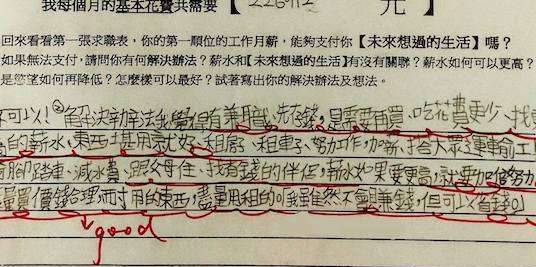 我每個月的基本花費共需要【 元】
回來看看第一張求職表，你的第一順位的工作月薪，能夠支付你【未來想過的生活】嗎？
如果無法支付，請問你有何解決辦法？薪水和【未來想過的生活】有沒有關聯？薪水如何可以更高？
是慾望如何再降低？怎麼樣可以最好？試著寫出你的解決辦法及想法。
不可以！②解決辦法我覺得有兼職、先存錢，是需要再買、吃花費更少、找更
的薪水，東西堪用就好、租房子、租車子、努力工作，加薪，搭大眾運輸工
腳踏車、減水費、跟父母住、找有錢的伴侶，薪水如果要更高，就要加倍努力
量買價錢合理而寸用的東西，盡量用租的，雖然不會賺錢，但可以省錢
good